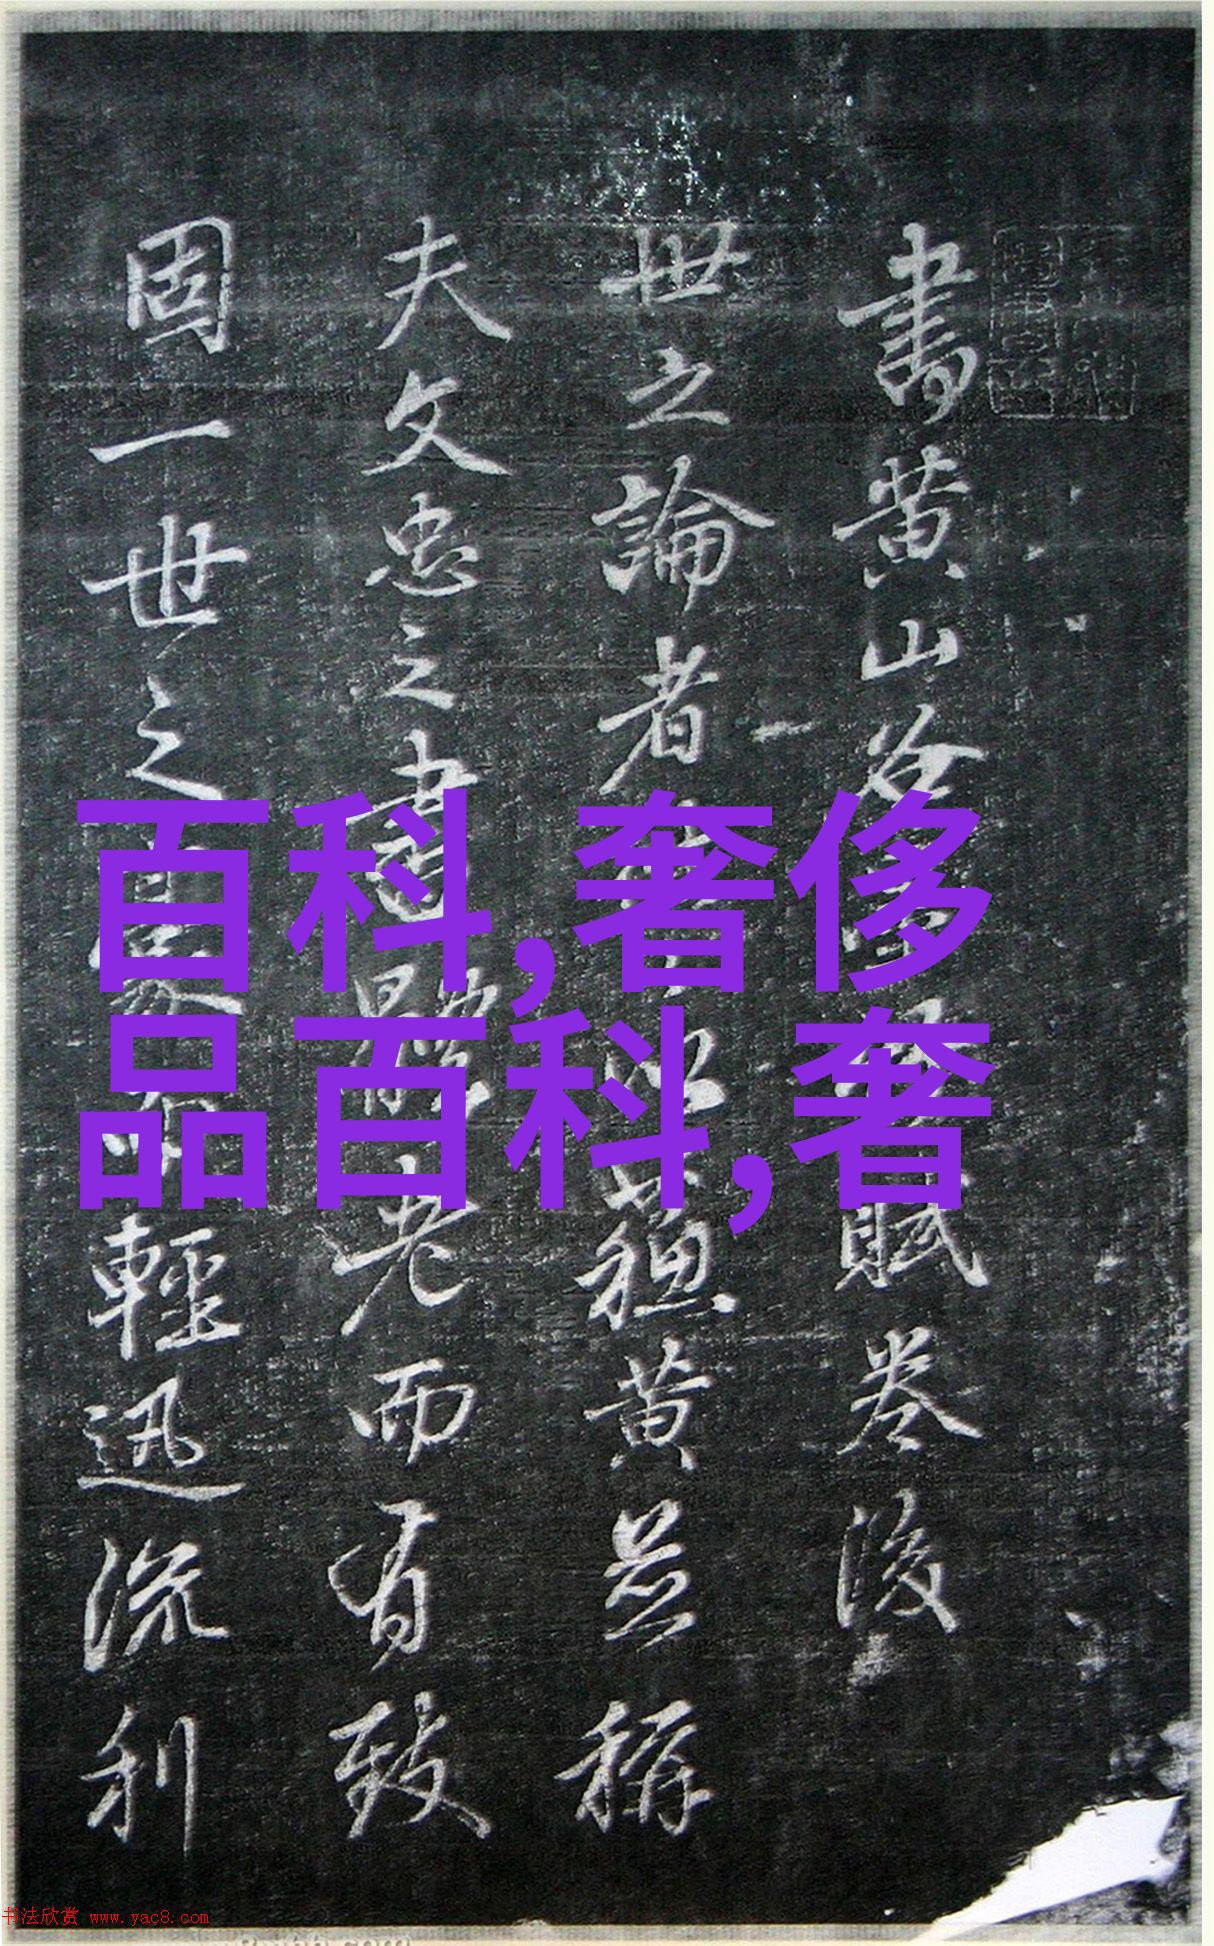 書黄山谷賦卷後
世之論者蘓黄並稱
夫文忠之書體老而有致
固一世之輕迅流利
百科,奢侈
品百科,奢
书法欣赏 www.yac8.com